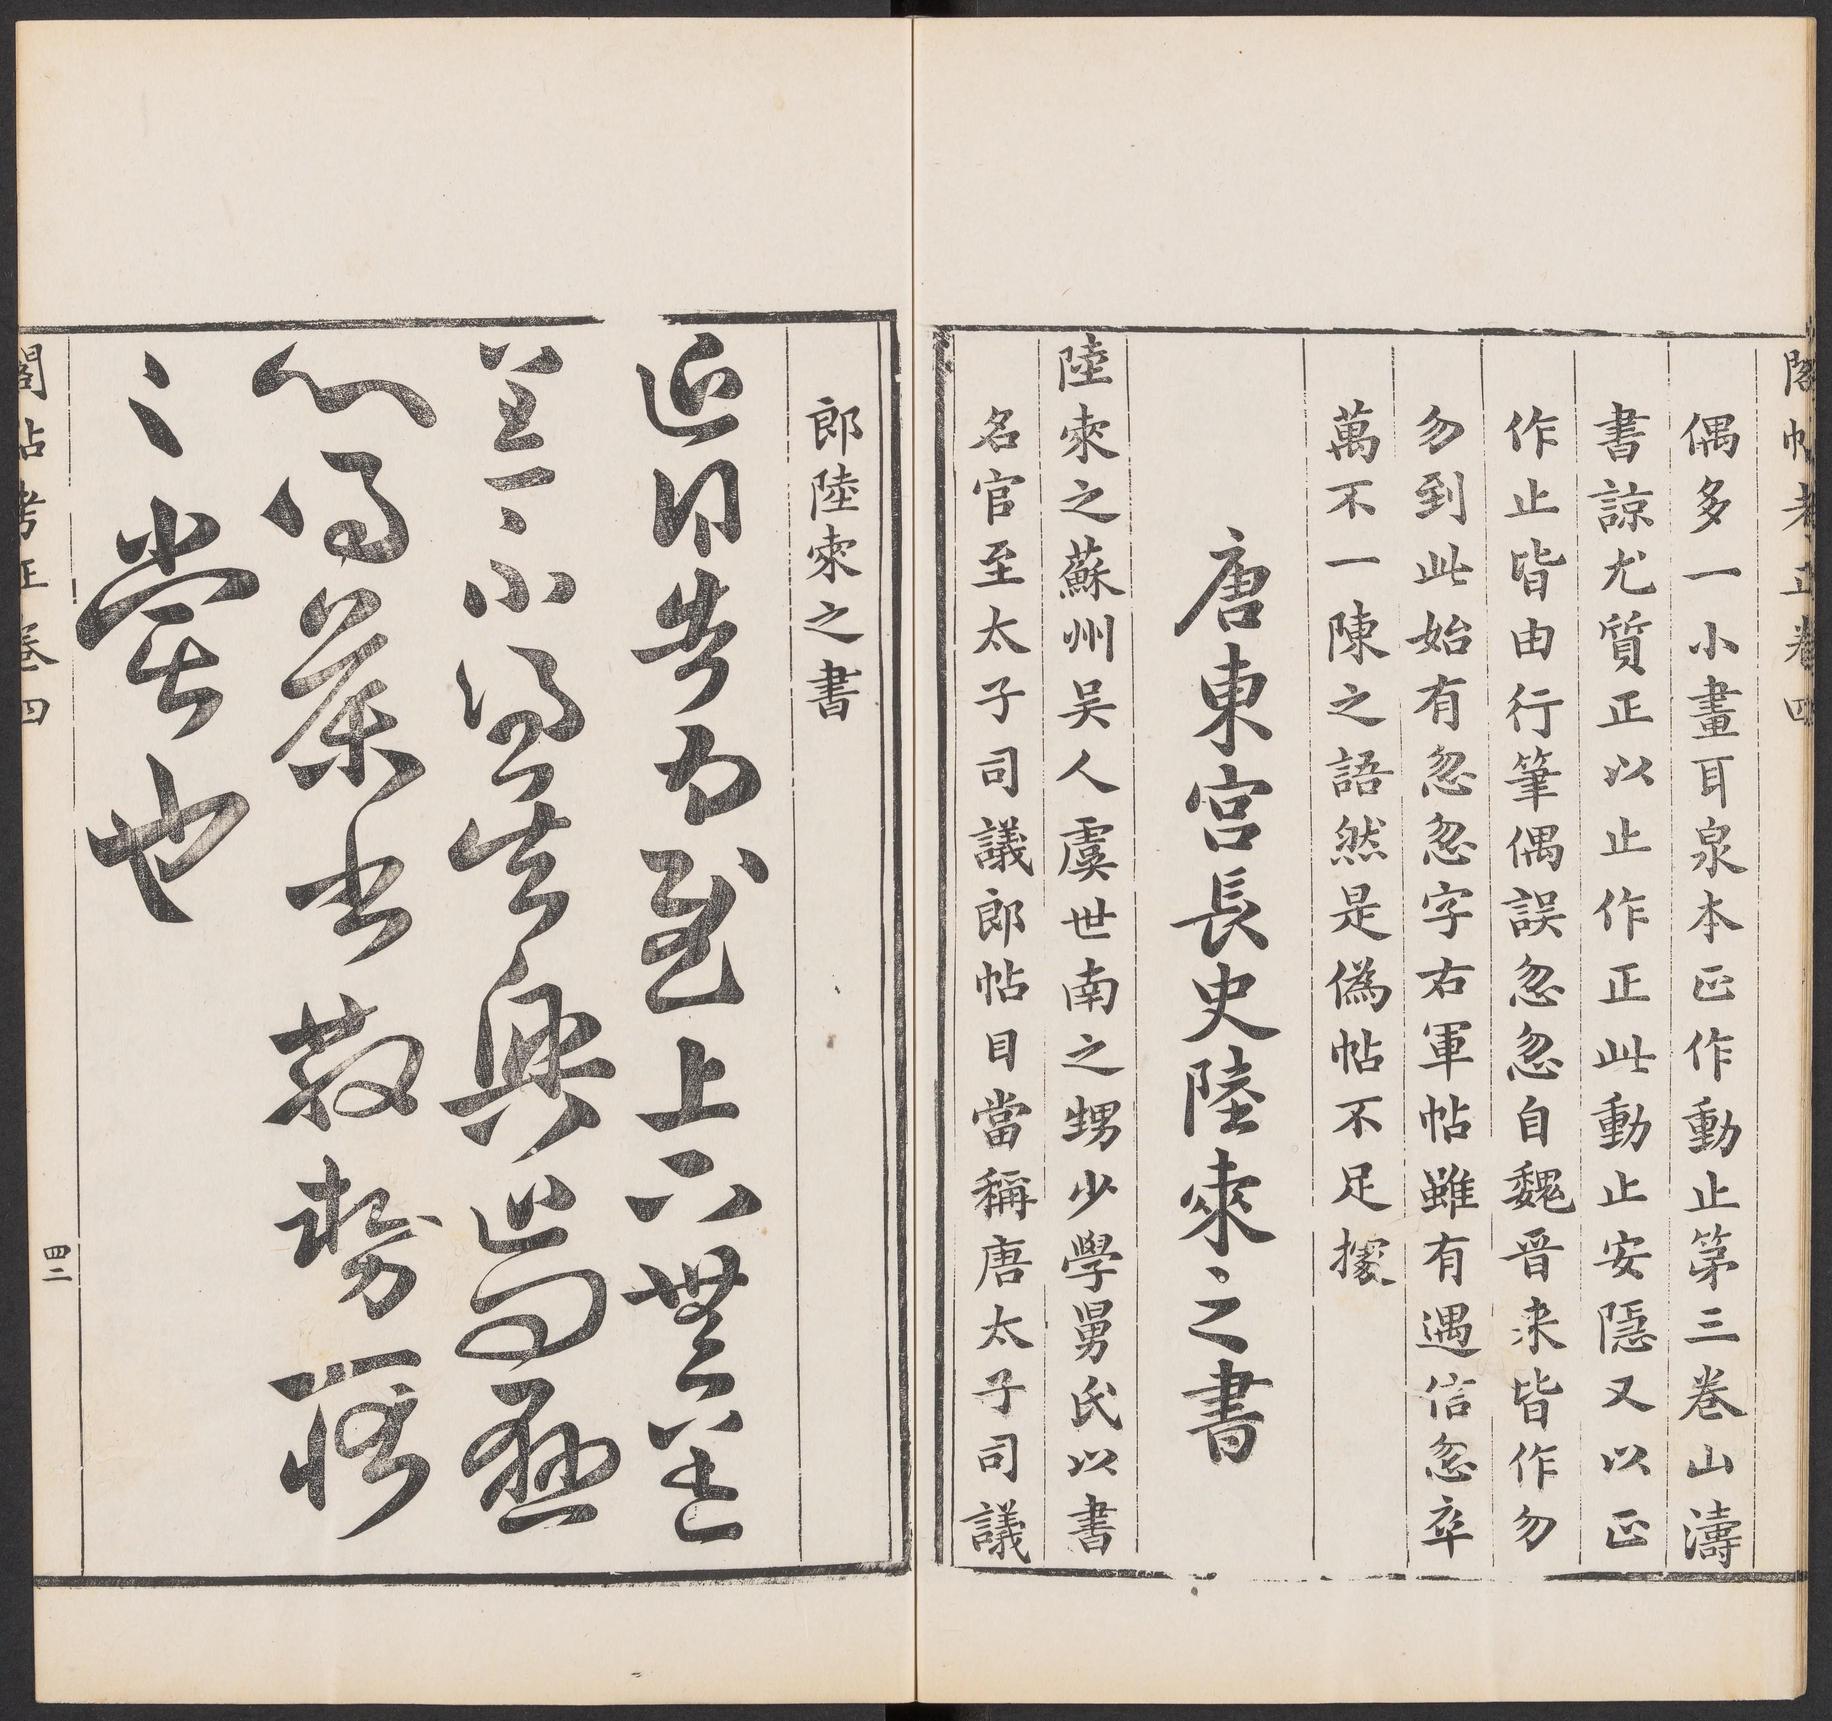 閣帖考正卷四
偶多一小畫耳泉本正作動止第三卷山濤
書諒尤質正以止作正此動止安隱又以正
作止皆由行筆偶誤忽忽自魏晉来皆作勿
勿到此始有忽忽字右軍帖雖有遇信忽卒
萬不一陳之語然是偽帖不足據
唐東宮長史陸柬之書
陸柬之蘇州吴人虞世南之甥少學舅氏以書
名官至太子司議郎帖目當稱唐太子司議
郎陸柬之書
近告為慰上下無恙
不得吳興近問懸
心得書散
常也
閣帖考正卷四
四二